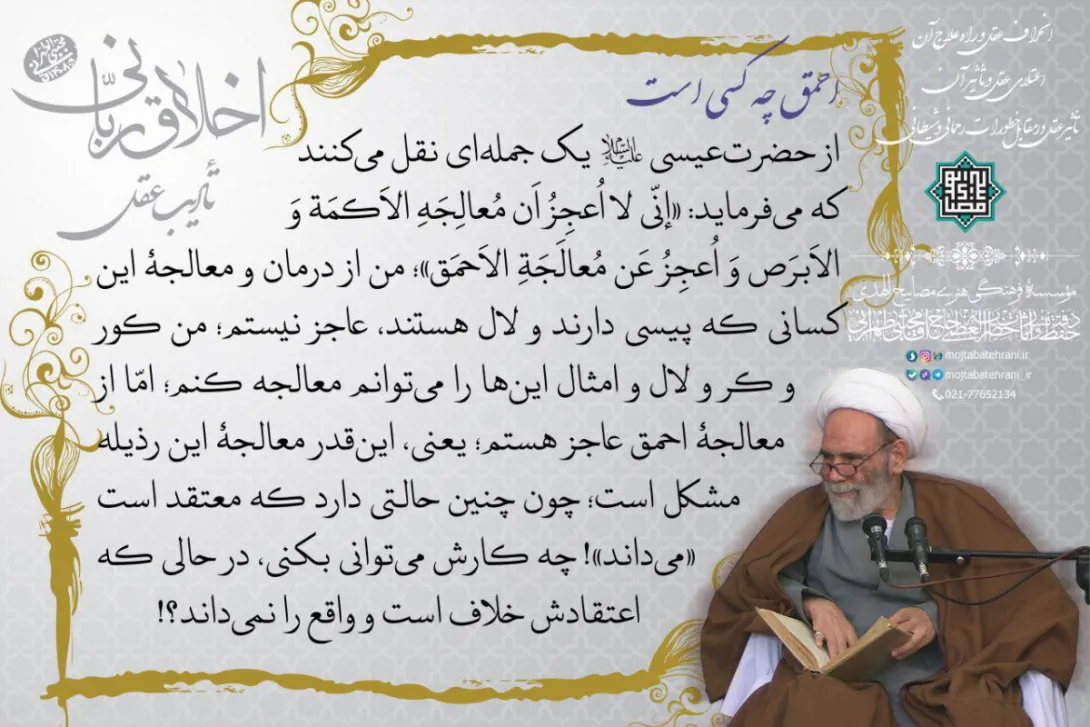 انحراف عقل و راه علاج آن
اعتلای عقل و تأثیر آن
تأثیر عقل در مقابل خطورات رحمانی و شیطانی
اخلاق ربّانی
تأدیب عقل
احمق چه کسی است
از حضرت‌عیسی علیه‌السلام یک جمله‌ای نقل می‌کنند
که می‌فرماید: «إنّی لا اُعجِزُ اَن مُعالِجَهِ الاَکمَة وَ
الاَبرَص وَ اُعجِزُ عَن مُعالَجَةِ الاَحمَق»؛ من از درمان و معالجهٔ این
کسانی که پیسی دارند و لال هستند، عاجز نیستم؛ من کور
و کر و لال و امثال این‌ها را می‌توانم معالجه کنم؛ امّا از
معالجهٔ احمق عاجز هستم؛ یعنی، این‌قدر معالجهٔ این رذیله
مشکل است؛ چون چنین حالتی دارد که معتقد است
«می‌داند»! چه کارش می‌توانی بکنی، در حالی که
اعتقادش خلاف است و واقع را نمی‌داند؟!
مؤسسه فرهنگی هنری مصابیح الهدی
mojtabatehrani.ir
mojtabatehrani_ir
021-77652134